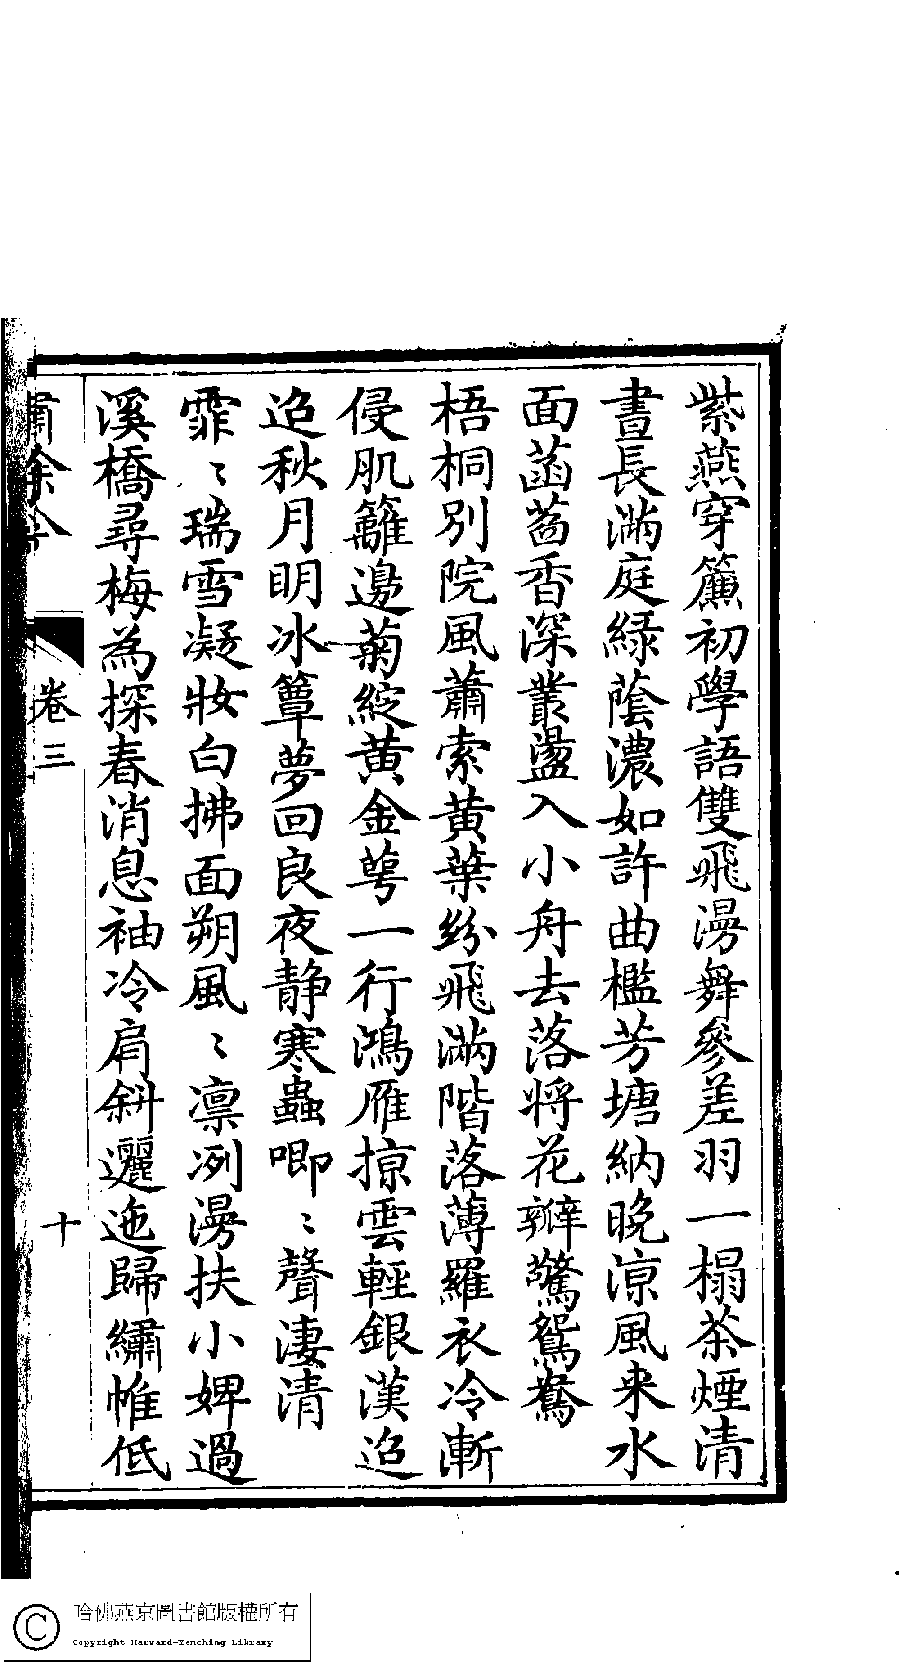 紫燕穿簾初學語雙飛漫舞參差羽一榻茶煙清
晝長滿庭綠蔭濃如許曲檻芳塘納晚涼風来水
面菡萏香深叢盪入小舟去落將花瓣驚鴛鴦
梧桐別院風蕭索黃葉紛飛滿階落薄羅衣冷漸
侵肌籬邊菊綻黃金萼一行鴻雁掠雲輕銀漢迢
迢秋月明冰簟夢回良夜静寒蟲唧〻聲淒清
霏〻瑞雪凝妝白拂面朔風〻凛冽漫扶小婢過
溪橋尋梅為探春消息袖冷肩斜邐迤歸繡帷低
繡餘
卷三
十
哈佛燕京圖書館版權所有
Copyright Harvard-Yenching Library